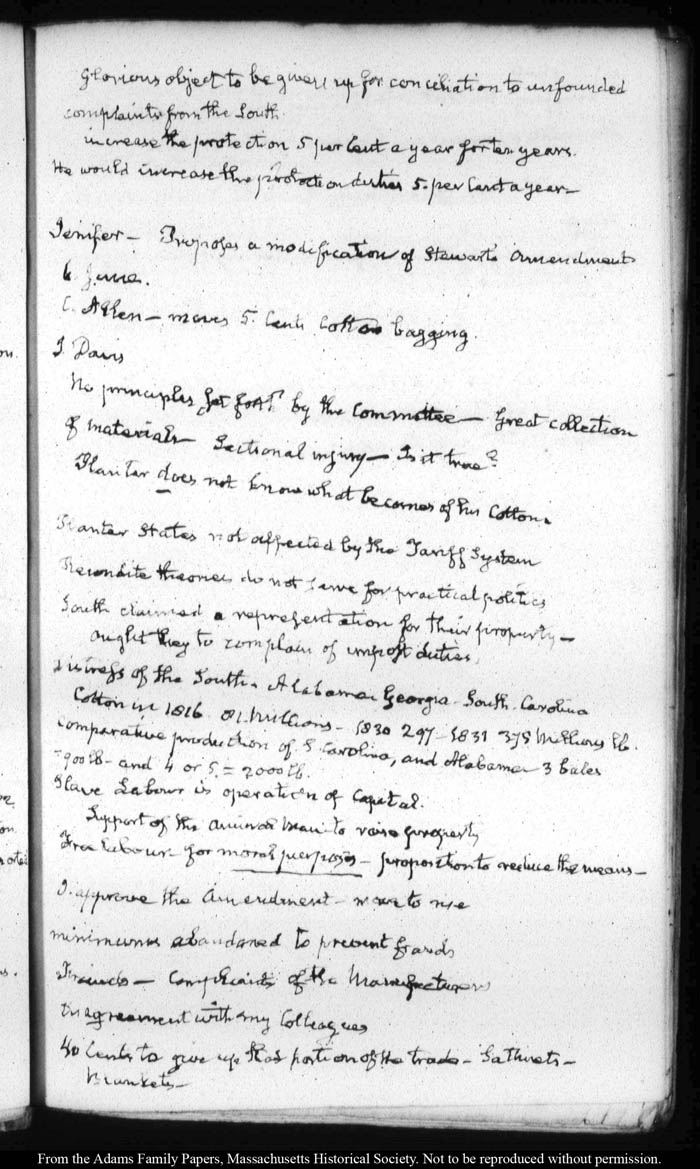 Glorious object to be given up for conciliation to unfounded
complaints from the South.
increase the protection 5 per Cent a year for ten years.
He would increase the protection duties 5. per Cent a year—
Jenifer— Proposes a modification of Stewart's Amendment
6. June.
C. Allen— moves 5. Cents Cotton bagging.
J. Davis
No principles set forth by the Committee— Great collection
of materials— Sectional injury— Is it true?
Planter does not know what becomes of his Cotton.
Planter States not affected by the Tariff System
Recondite theories do not serve for practical politics
South claimed a representation for their property—
ought they to complain of impost duties.
Distress of the South. Alabama Georgia. South-Carolina
Cotton in 1816. 81. Millions— 1830 297— 1831 375 Millions lb.
comparative production of S Carolina, and Alabama 3 bales
=900 lb— and 4 or 5. = 2000 lb.
Slave Labour is operation of Capital.
Support of the animal man to raise property
Free Labour— for moral purposes— proposition to reduce the means—
I approve the Amendment— move to rise
minimums abandoned to prevent frauds
Friends— Complaints of the Manufacturers
Disagreement with my Colleagues
40 Cents to give up that portion of the trade— Satinets—
Blankets—
From the Adams Family Papers, Massachusetts Historical Society. Not to be reproduced without permission.